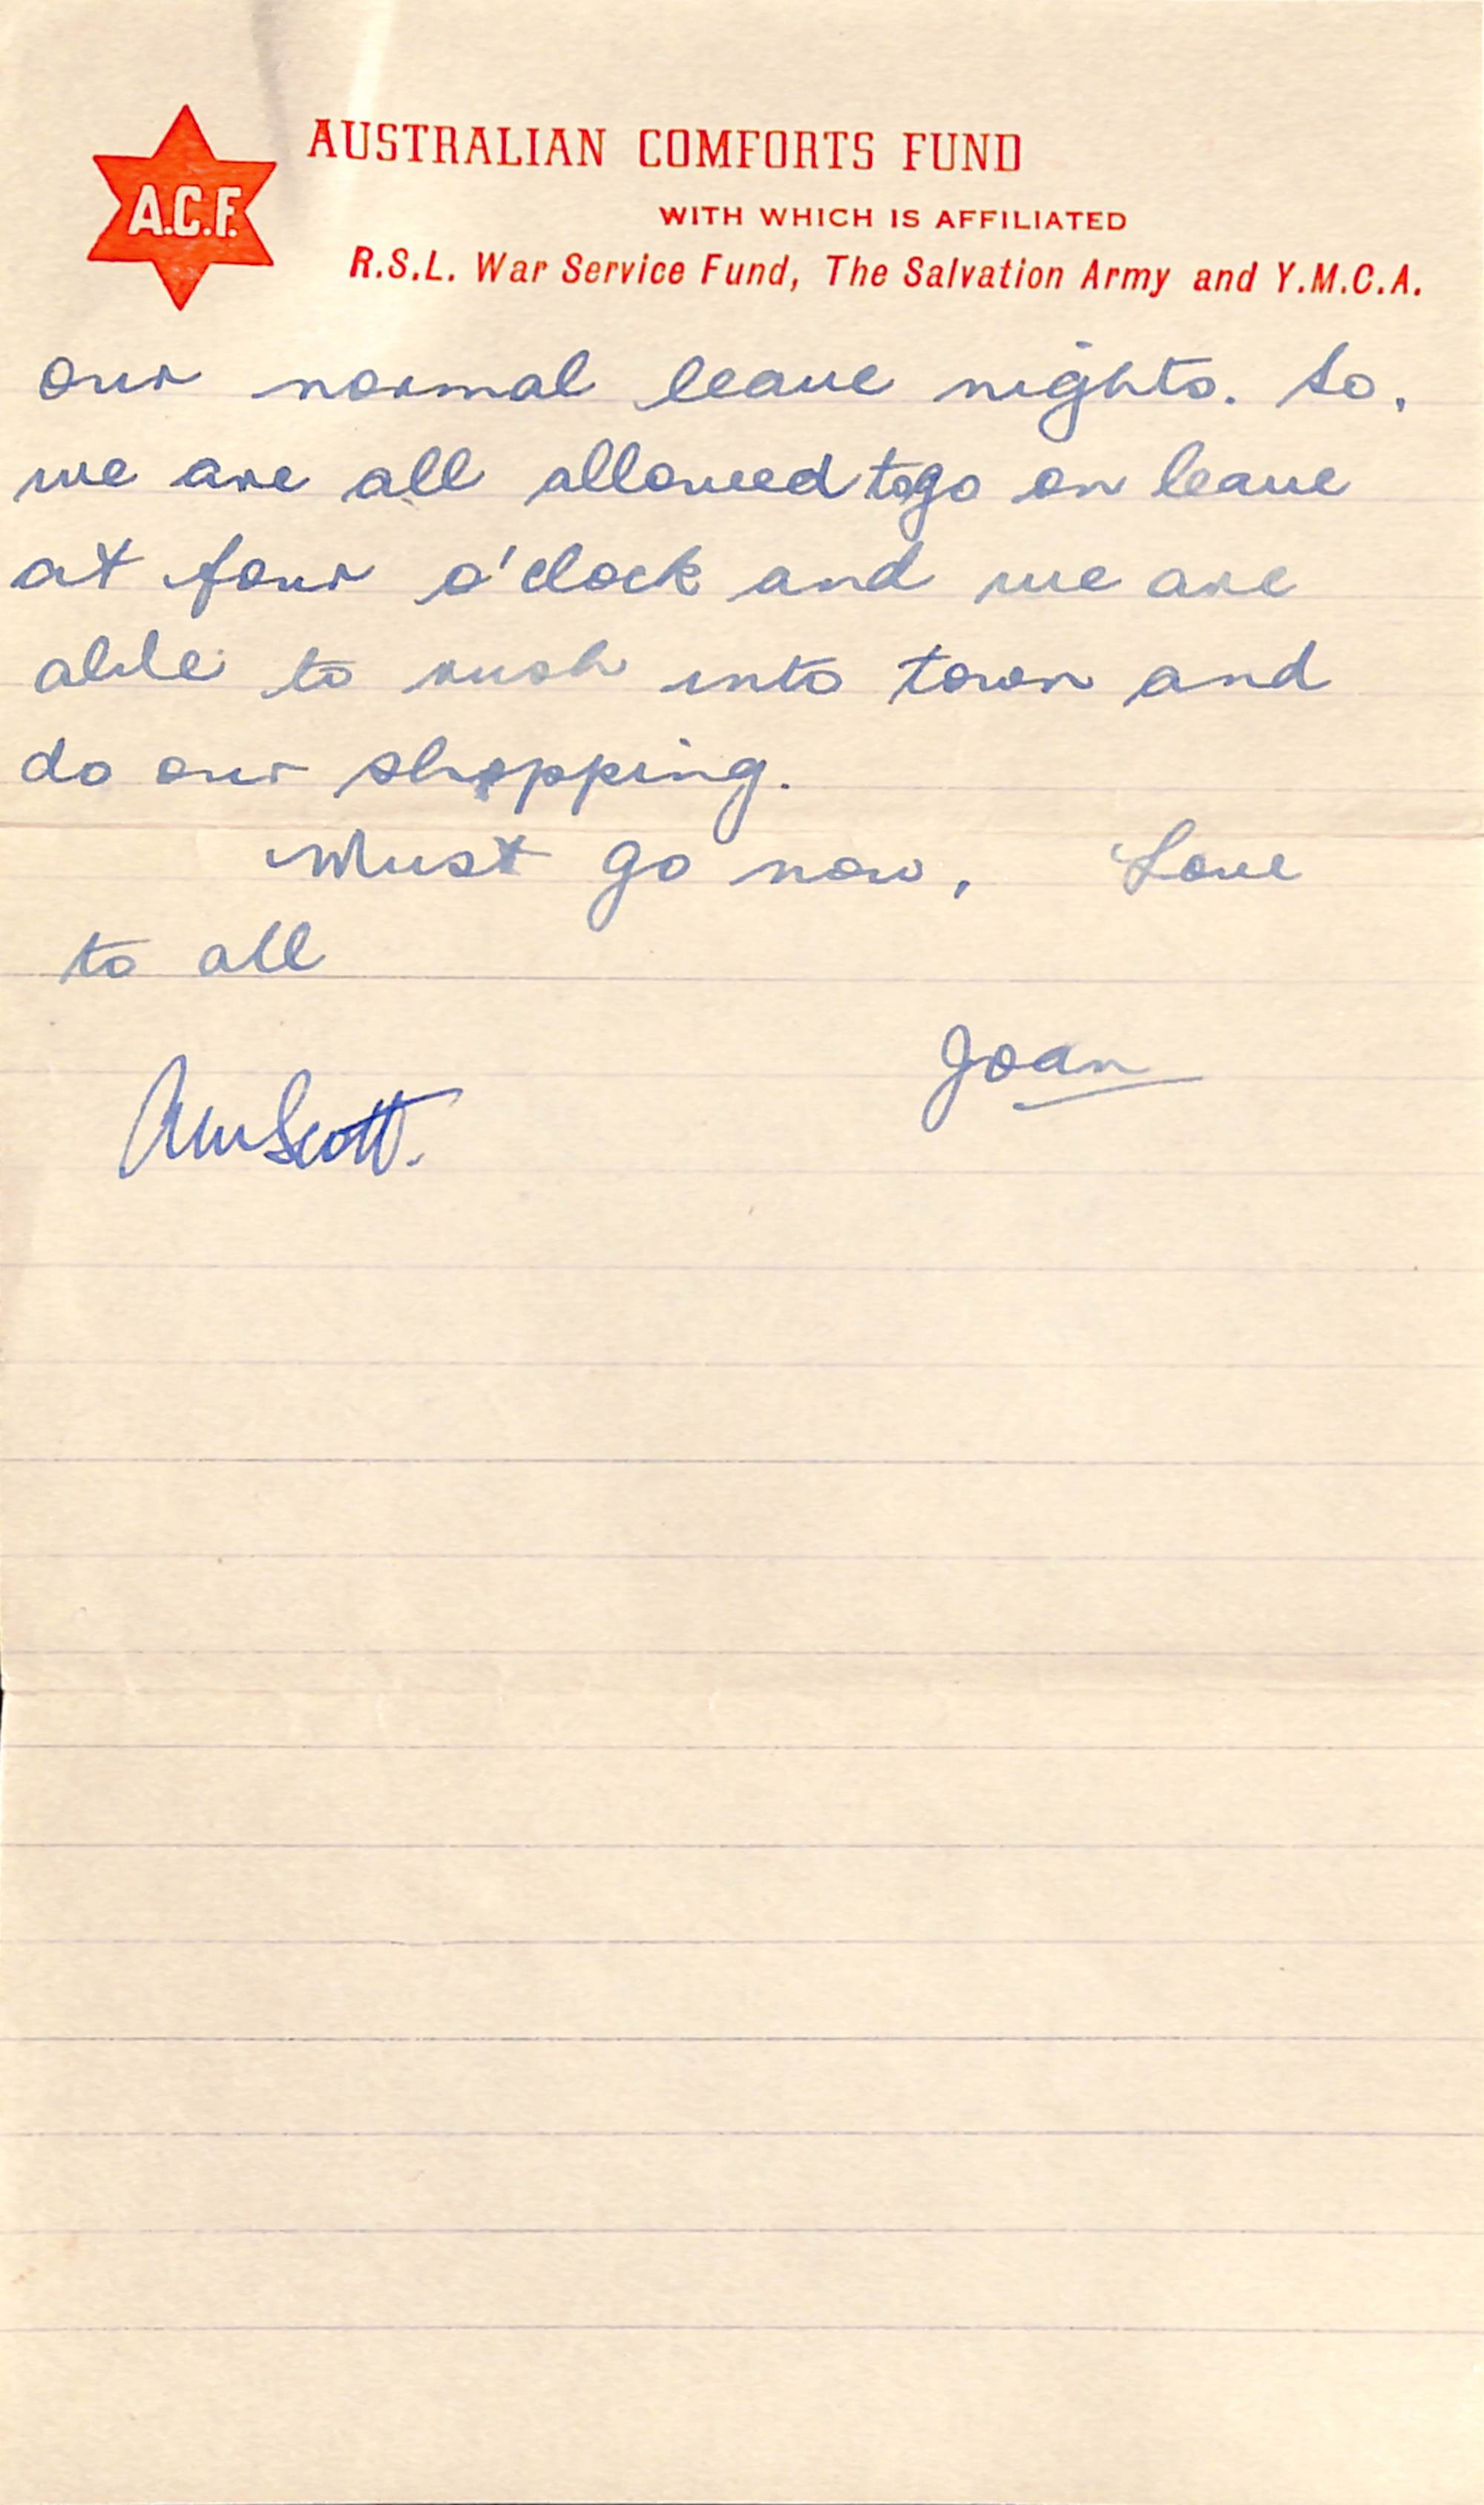 A.C.F.
AUSTRALIAN COMFORTS FUND
WITH WHICH IS AFFILIATED
R.S.L. War Service Fund, The Salvation Army and Y.M.C.A.
our normal leave nights. So,
we are all allowed to go on leave
at four o'clock and we are
able to rush into town and
do our shopping.
Must go now, Love
to all
Joan
Scott.